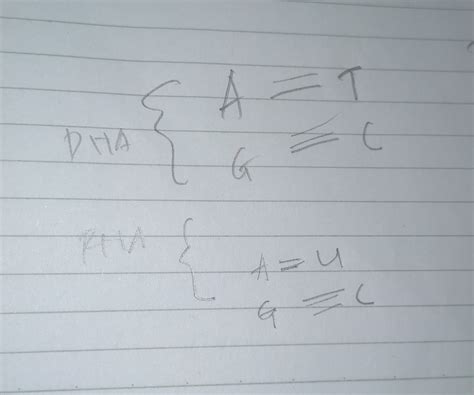 DHA { A = T
G ≡ C
RHA { A = U
G ≡ C